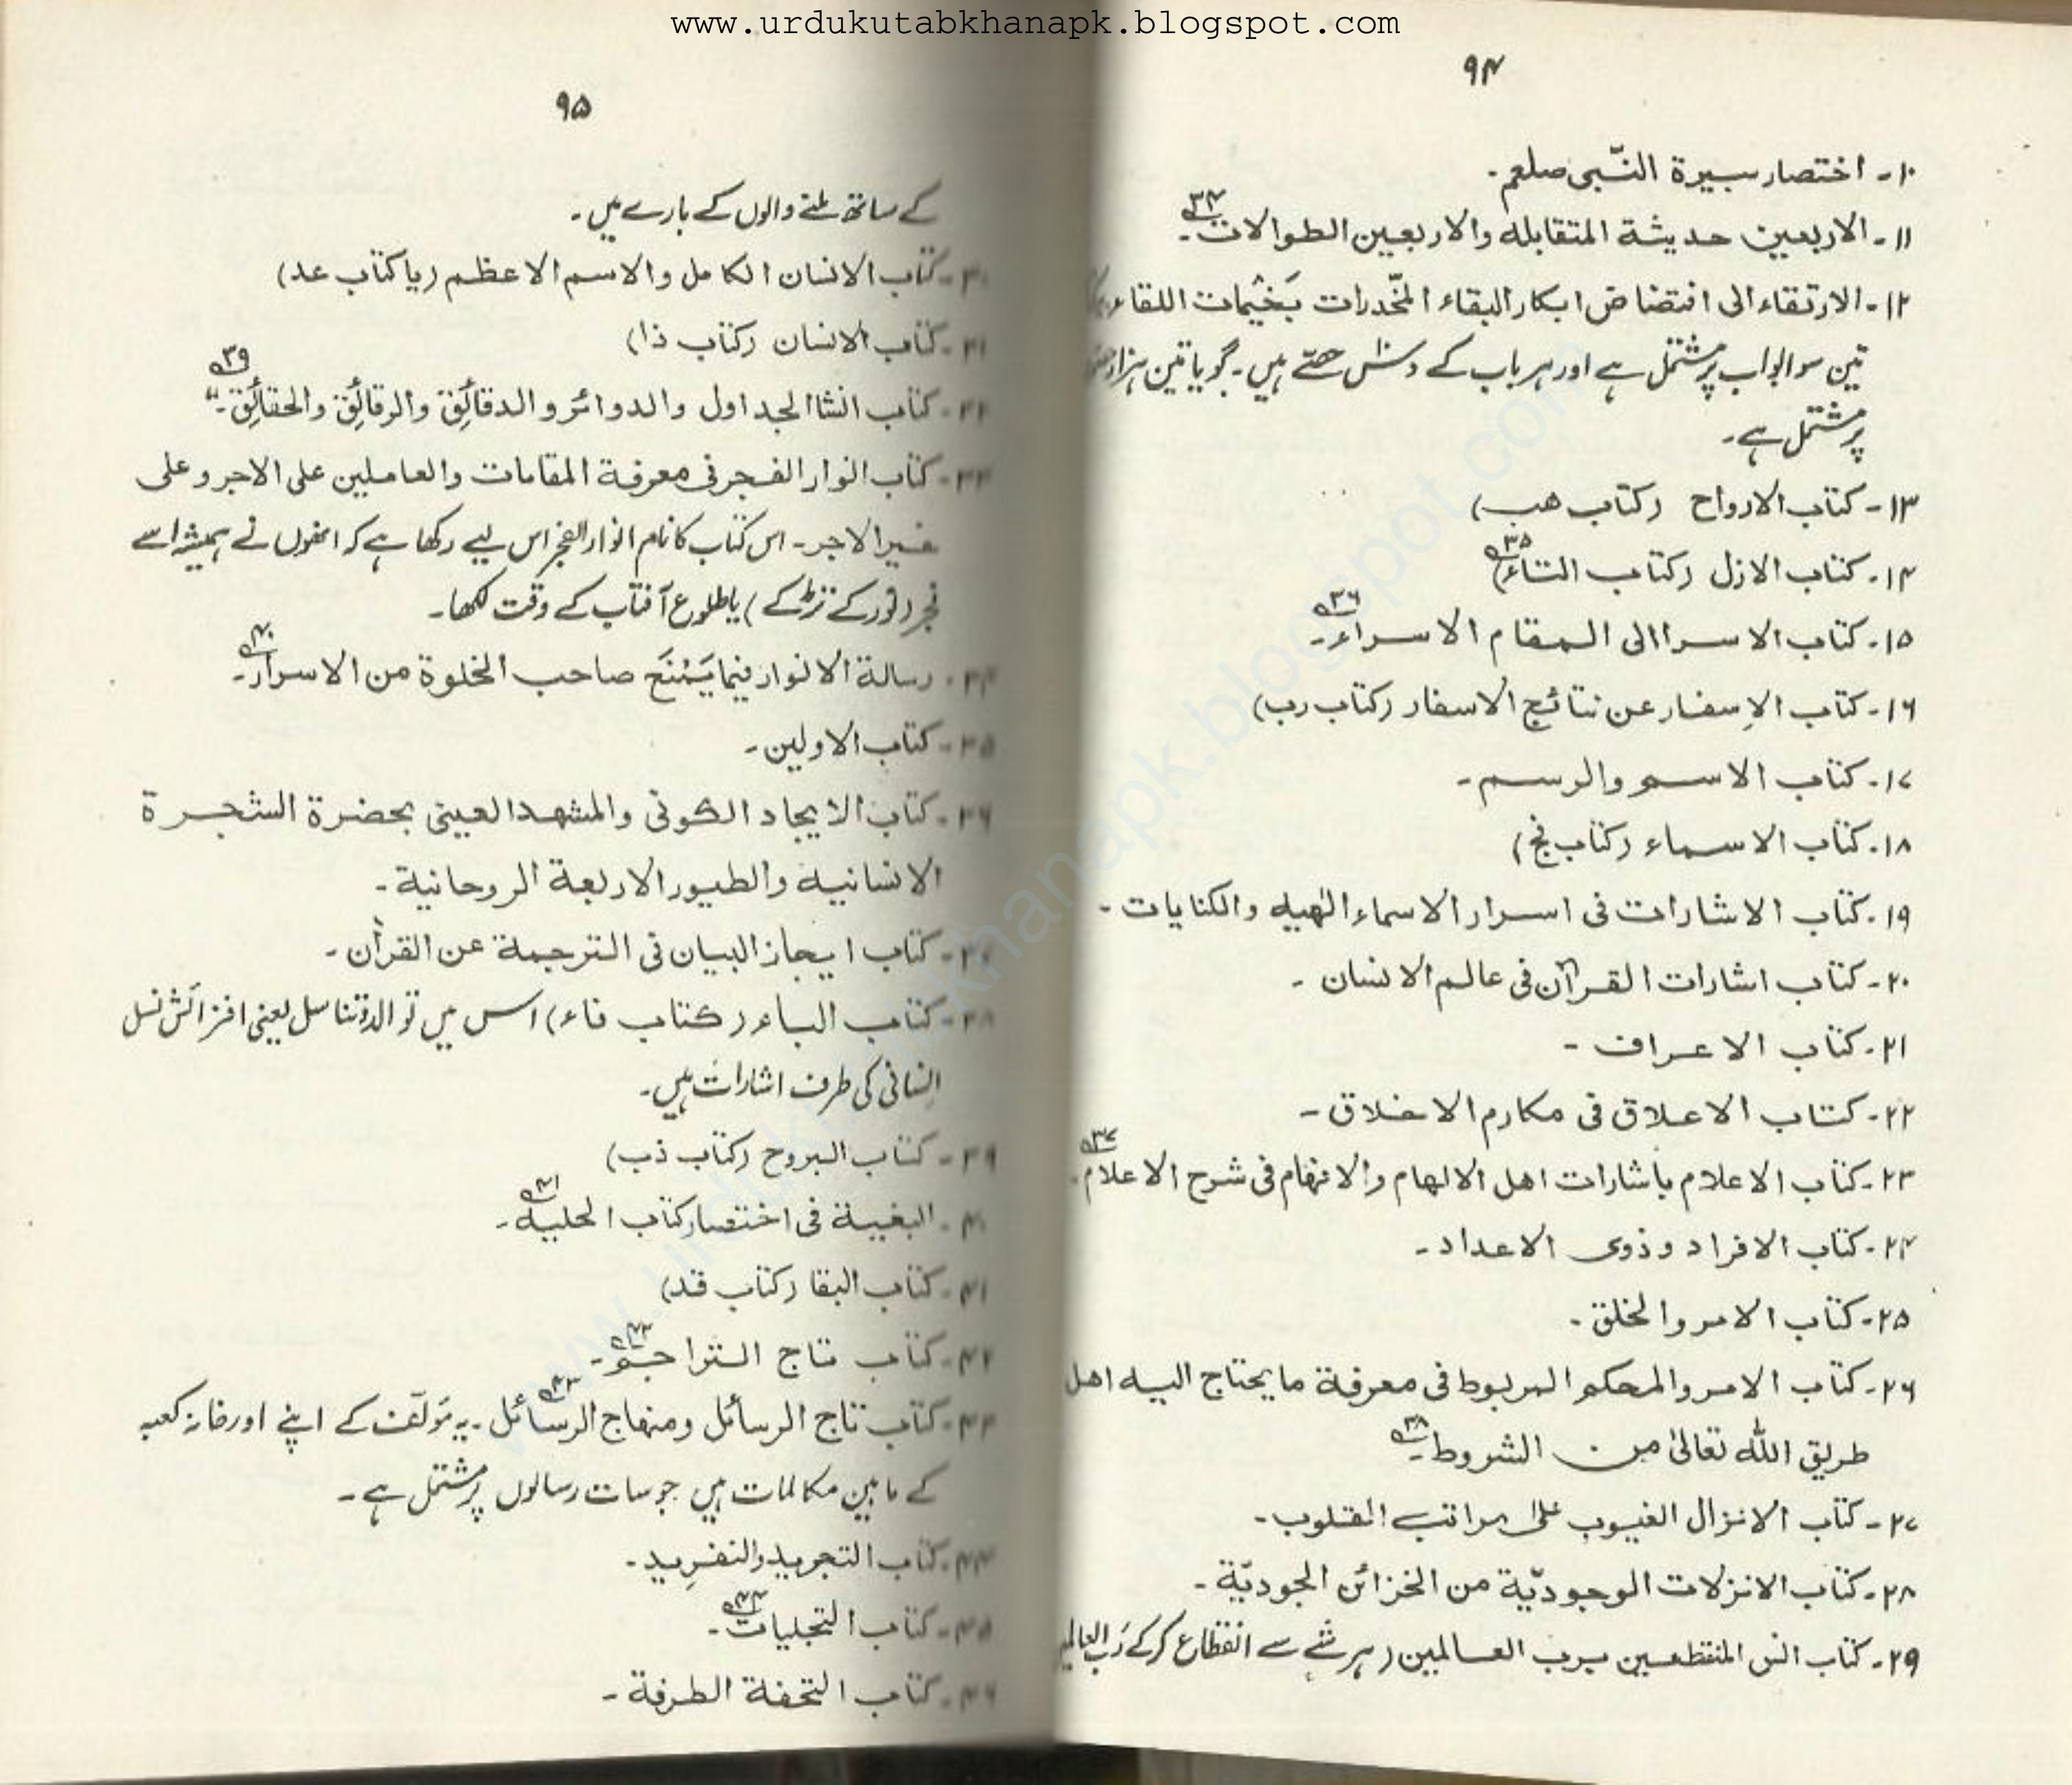 www.urdukutabkhanapk.blogspot.com
۹۴
۱۰۔ اختصار سیرة النّبی صلعم۔
۱۱۔ الاربعین حدیثة المتقابله والاربعین الطوالات۔ ۳۴
۱۲۔ الارتقاء الی افتضاض ابکار البقاء المخدّرات بَخیمات اللقاء
تین سو ابواب پر مشتمل ہے اور ہر باب کے دس حصّے ہیں۔ گویا تین ہزار
پر مشتمل ہے۔
۱۳۔ کتاب الارواح (کتاب هب)
۱۴۔ کتاب الازل (کتاب التاء) ۳۵
۱۵۔ کتاب الاسرا الی المقام الاسراء۔ ۳۶
۱۶۔ کتاب الاِسفار عن نتائج الاسفار (کتاب رب)
۱۷۔ کتاب الاسم والرسم۔
۱۸۔ کتاب الاسماء (کتاب نج)
۱۹۔ کتاب الاشارات فی اسرار الاسماء الٰهیه والکنایات۔
۲۰۔ کتاب اشارات القرآن فی عالم الانسان۔
۲۱۔ کتاب الاعراف۔
۲۲۔ کتاب الاعلاق فی مکارم الاخلاق۔
۲۳۔ کتاب الاعلام باشارات اهل الالهام والافهام فی شرح الاعلام۔ ۳۷
۲۴۔ کتاب الافراد وذوی الاعداد۔
۲۵۔ کتاب الامر والخلق۔
۲۶۔ کتاب الامر والمحکم المربوط فی معرفة ما یحتاج الیه اهل
طریق اللّٰه تعالیٰ من الشروط۔ ۳۸
۲۷۔ کتاب الانزال الغیوب علیٰ مراتب القلوب۔
۲۸۔ کتاب الانزلات الوجودیّة من الخزائن الجودیّة۔
۲۹۔ کتاب انس المنقطعین برب العالمین (ہر شے سے انقطاع کرکے رَب العالمین
۹۵
کے ساتھ ملنے والوں کے بارے میں۔
۳۰۔ کتاب الانسان الکامل والاسم الاعظم (یا کتاب عد)
۳۱۔ کتاب الانسان (کتاب ذا)
۳۲۔ کتاب انشا الجداول والدوائر والدقائق والرقائق والحقائق۔ ۳۹
۳۳۔ کتاب انوار الفجر فی معرفة المقامات والعاملین علی الاجر وعلی
غیر الاجر۔ اس کتاب کا نام انوار الفجر اس لیے رکھا ہے کہ انھوں نے ہمیشہ اسے
فجر (نور کے تڑکے) یا طلوع آفتاب کے وقت لکھا۔
۳۴۔ رسالة الانوار فیما یَمْنَع صاحب الخلوة من الاسرار۔ ۴۰
۳۵۔ کتاب الاولین۔
۳۶۔ کتاب الایجاد الکونی والمشهد العینی بحضرة الشجرة
الانسانیه والطیور الاربعة الروحانیة۔
۳۷۔ کتاب ایجاز البیان فی الترجمة عن القرآن۔
۳۸۔ کتاب الباء (کتاب فاء) اس میں توالد و تناسل یعنی افزائش نسل
انسانی کی طرف اشارات ہیں۔
۳۹۔ کتاب البروح (کتاب ذب)
۴۰۔ البغیة فی اختصار کتاب الحلیه۔ ۴۱
۴۱۔ کتاب البقا (کتاب قد)
۴۲۔ کتاب تاج التراجم۔ ۴۲
۴۳۔ کتاب تاج الرسائل ومنهاج الرسائل ۴۳۔ یہ مؤلّف کے اپنے اور خانہ کعبہ
کے مابین مکالمات ہیں جو سات رسالوں پر مشتمل ہے۔
۴۴۔ کتاب التجرید والتفرید۔
۴۵۔ کتاب التجلیات۔ ۴۴
۴۶۔ کتاب التحفة الطرفة۔
www.urdukutabkhanapk.blogspot.com